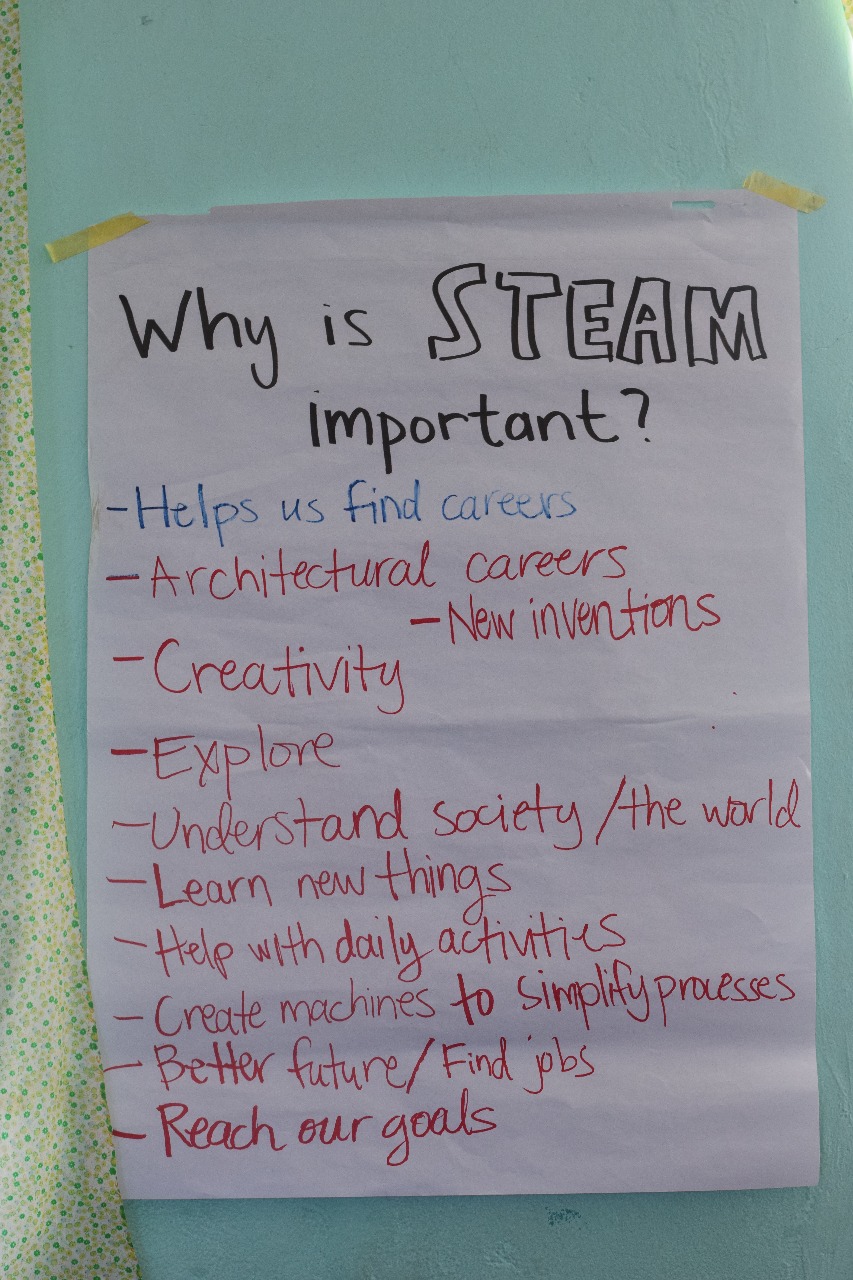 Why is STEAM
important?
-Helps us find careers
- Architectural careers
- New inventions
- Creativity
- Explore
- Understand society / the world
- Learn new things
- Help with daily activities
- Create machines to simplify processes
- Better future / Find jobs
- Reach our goals